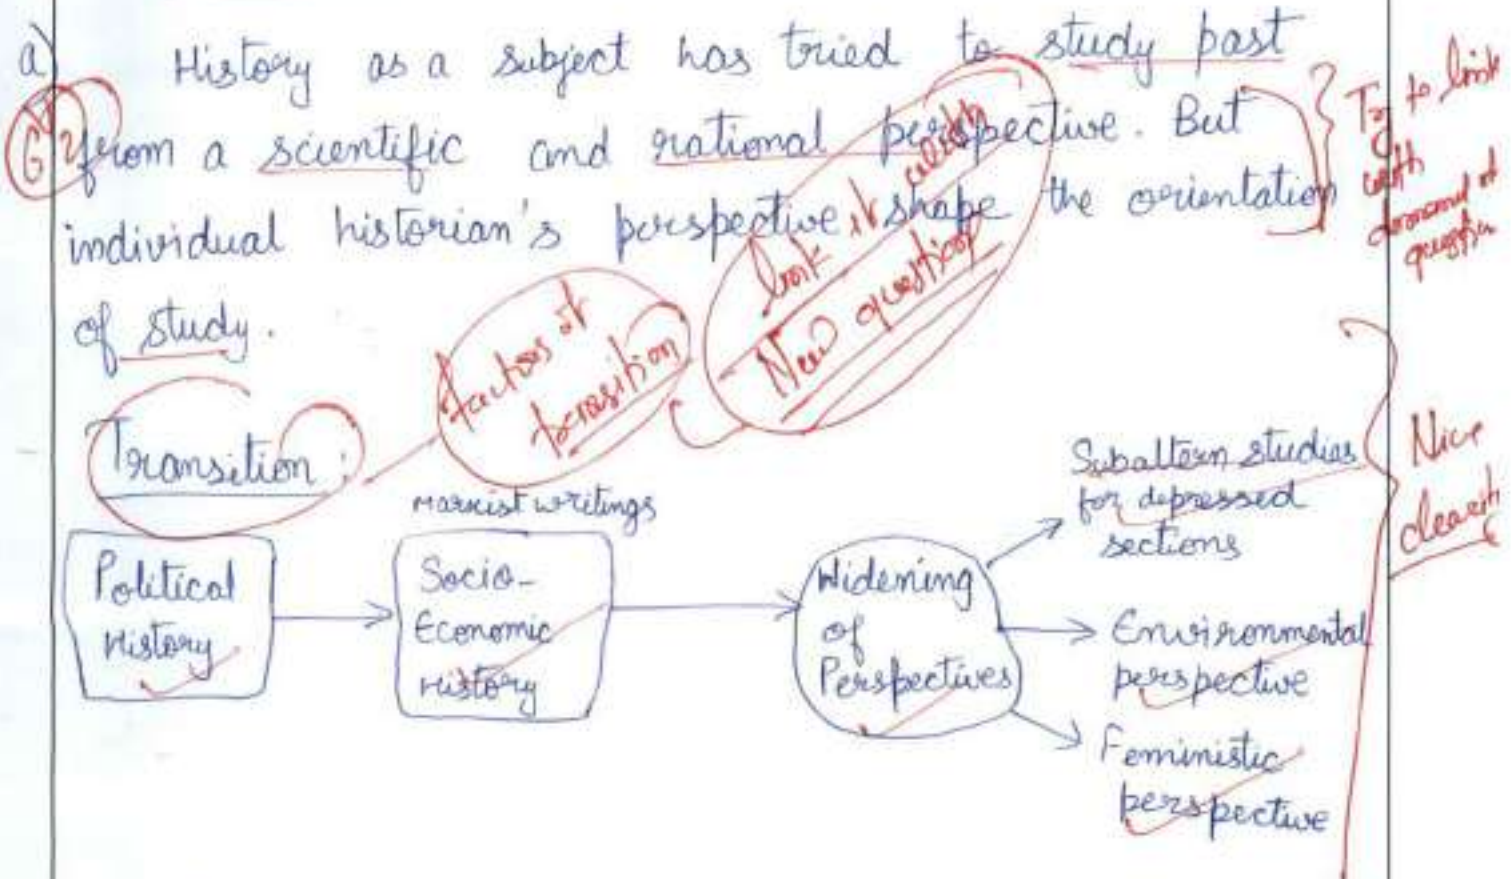 a) History as a subject has tried to study past
from a scientific and rational perspective. But
individual historian's perspective shape the orientation
of study.
Try to link
with
demand of
question
link it with
New question
factors of
transition
Transition :
Marxist writings
Political
History
Socio-
Economic
History
Widening
of
Perspectives
Subaltern studies
for depressed
sections
Environmental
perspective
Feministic
perspective
Nice